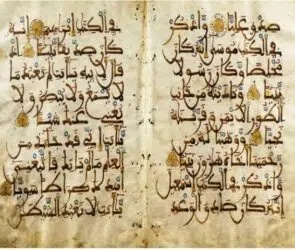 صدق عليا واذكر
في الكتب موسى انه
كان مخلصا وكان رسولا
نبيا وندينه من جانب
الطور الايمن وقربنه
نجيا ووهبنا له من
رحمتنا اخاه هرون نبيا
واذكر في الكتب اسمعيل
انه كان صادق الوعد
في الكتب ابرهيم انه
كان صديقا نبيا اذ
قال لابيه يابت لم تعبد ما
لا يسمع ولا يبصر ولا
يغني عنك شيئا
يابت اني قد جاءني من
العلم ما لم ياتك فاتبعني
اهدك صرطا سويا
يابت لا تعبد الشيطن